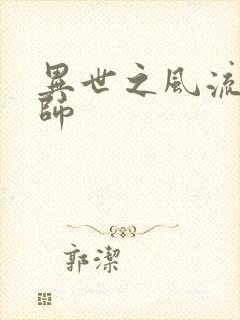 異世之風流
師
郭潔